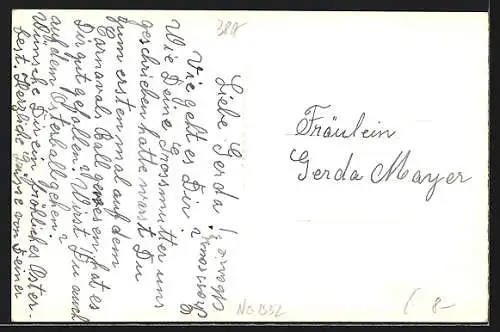 388
Liebe Gerda!
Wie geht es Dir?
Wie Deine Grossmutter uns
geschrieben hatte warst Du
zum ersten mal auf dem
Carnavals Ball gewesen, hat es
Dir gut gefallen? Wirst Du auch
auf dem Osterball gehen?
Wünsche Dir ein fröhliches Oster-
fest. Herzliche Grüsse von Deiner
Fräulein
Gerda Mayer
8-